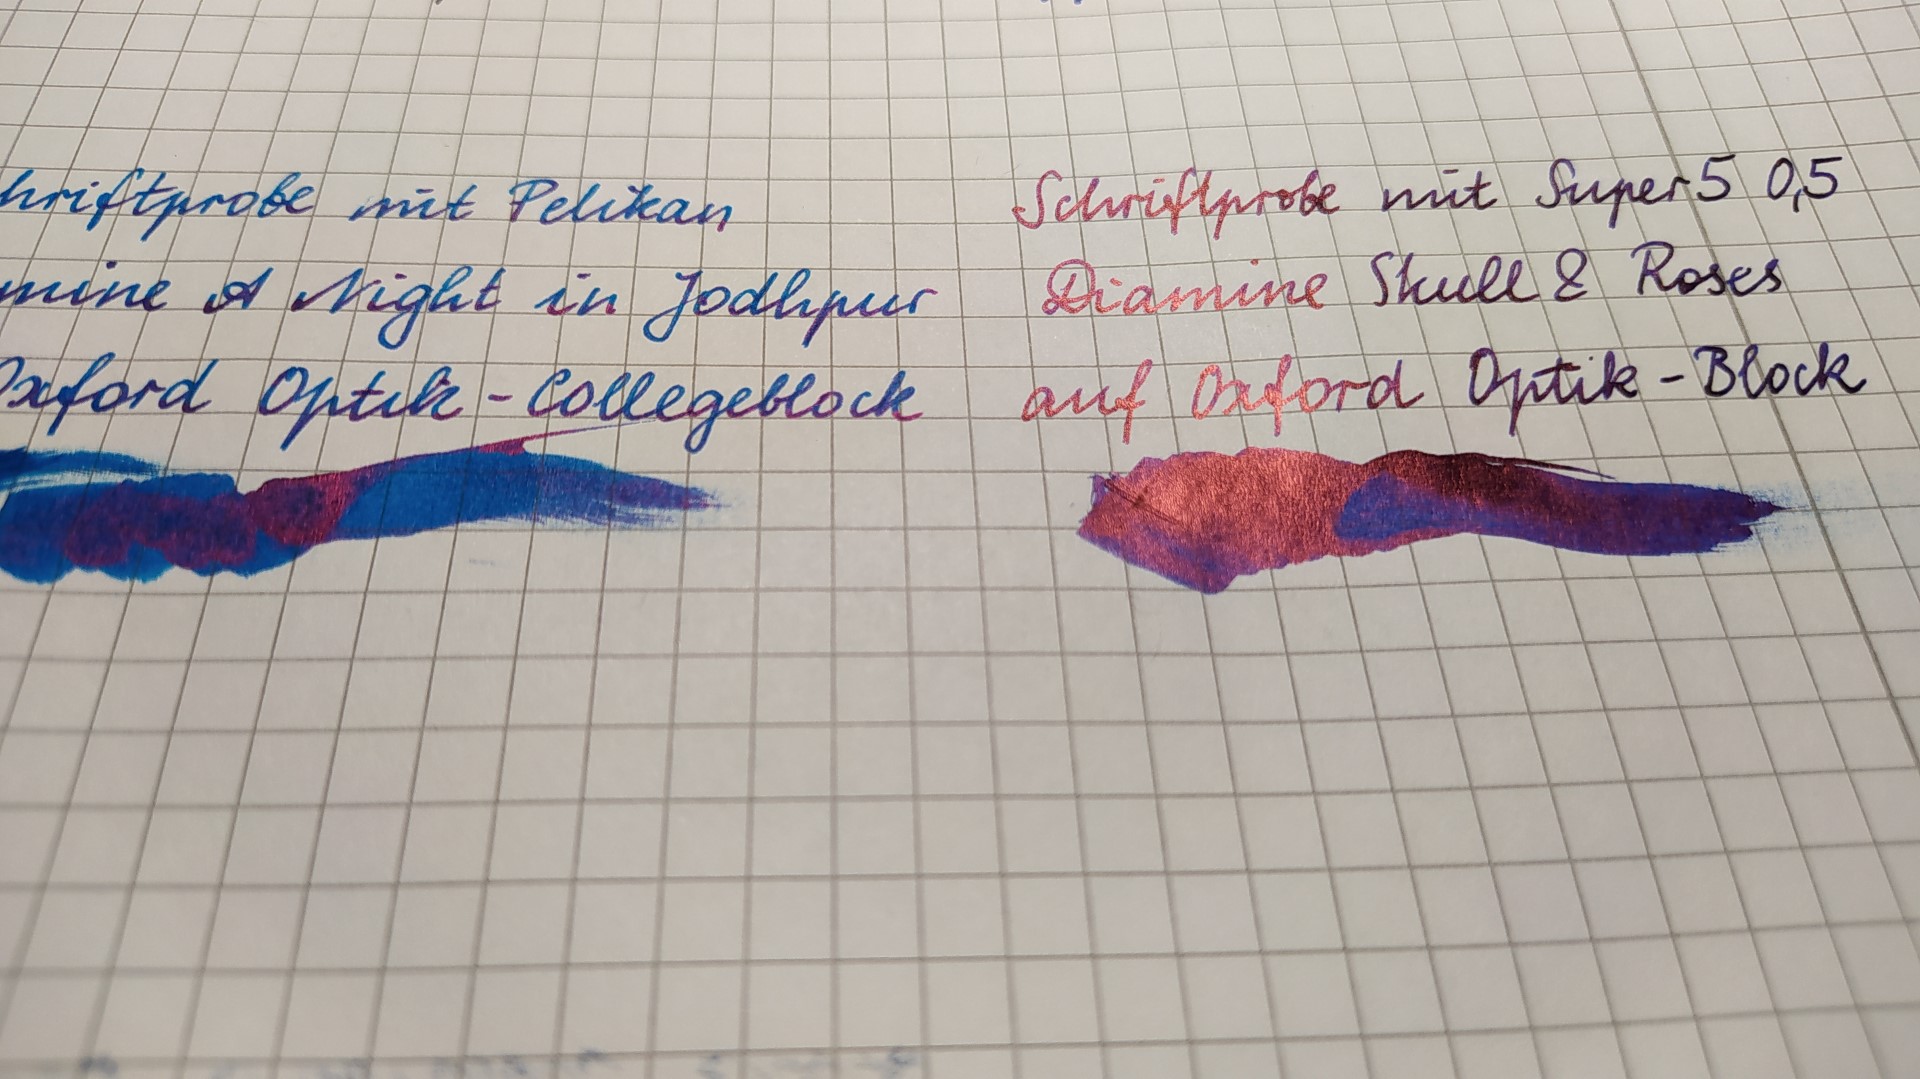 hriftprobe mit Pelikan
mine A Night in Jodhpur
Oxford Optik-Collegeblock
Schriftprobe mit Super5 0,5
Diamine Skull & Roses
auf Oxford Optik-Block